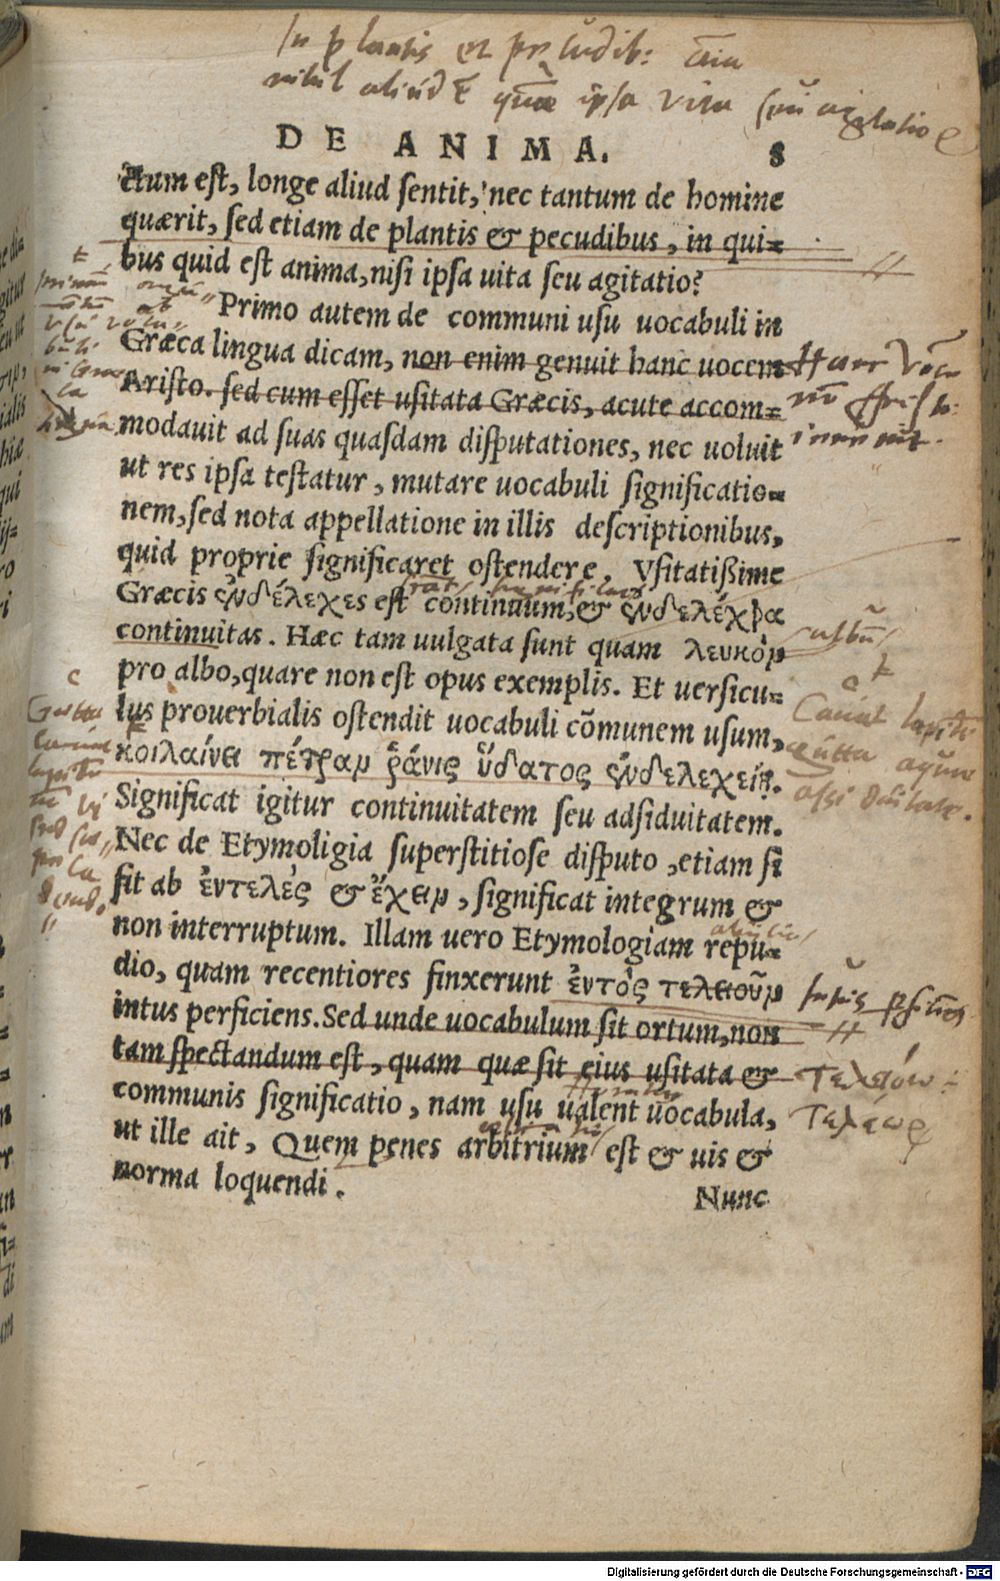 In plantis et pecudib: aīa
nihil aliud ē quā ipsa vita seu agitatio
DE ANIMA. 8
ctum est, longe aliud sentit, nec tantum de homine
quærit, sed etiam de plantis & pecudibus, in qui=
bus quid est anima, nisi ipsa uita seu agitatio?
Primo autem de communi usu uocabuli in
Græca lingua dicam, non enim genuit hanc uocem
Aristo. sed cum esset usitata Græcis, acute accom=
modauit ad suas quasdam disputationes, nec uoluit
ut res ipsa testatur, mutare uocabuli significatio=
nem, sed nota appellatione in illis descriptionibus,
quid proprie significaret ostendere. Vsitatißime
Græcis ἐνδέλεχες est continuum, & ἐνδελέχεια
continuitas. Hæc tam uulgata sunt quam λευκὸν
pro albo, quare non est opus exemplis. Et uersicu=
lus prouerbialis ostendit uocabuli cōmunem usum,
κοιλαίνει πέτραν ῥάνις ὕδατος ἐνδελεχείῃ.
Significat igitur continuitatem seu adsiduitatem.
Nec de Etymoligia superstitiose disputo, etiam si
sit ab ἐντελὲς & ἔχειν, significat integrum &
non interruptum. Illam uero Etymologiam repu=
dio, quam recentiores finxerunt ἐντὸς τελειοῦν
intus perficiens. Sed unde uocabulum sit ortum, non
tam spectandum est, quam quæ sit eius usitata &
communis significatio, nam usu ualent uocabula,
ut ille ait, Quem penes arbitrium est & uis &
norma loquendi.
Nunc
Hanc Voca
Aristo:
inuenit.
albū
Cauat lapidē
gutta aquæ
assiduitate.
τελειόω
Gutta
cauat
lapidē
nō vi
sed sæ
pe ca
dendo
Digitalisierung gefördert durch die Deutsche Forschungsgemeinschaft - DFG